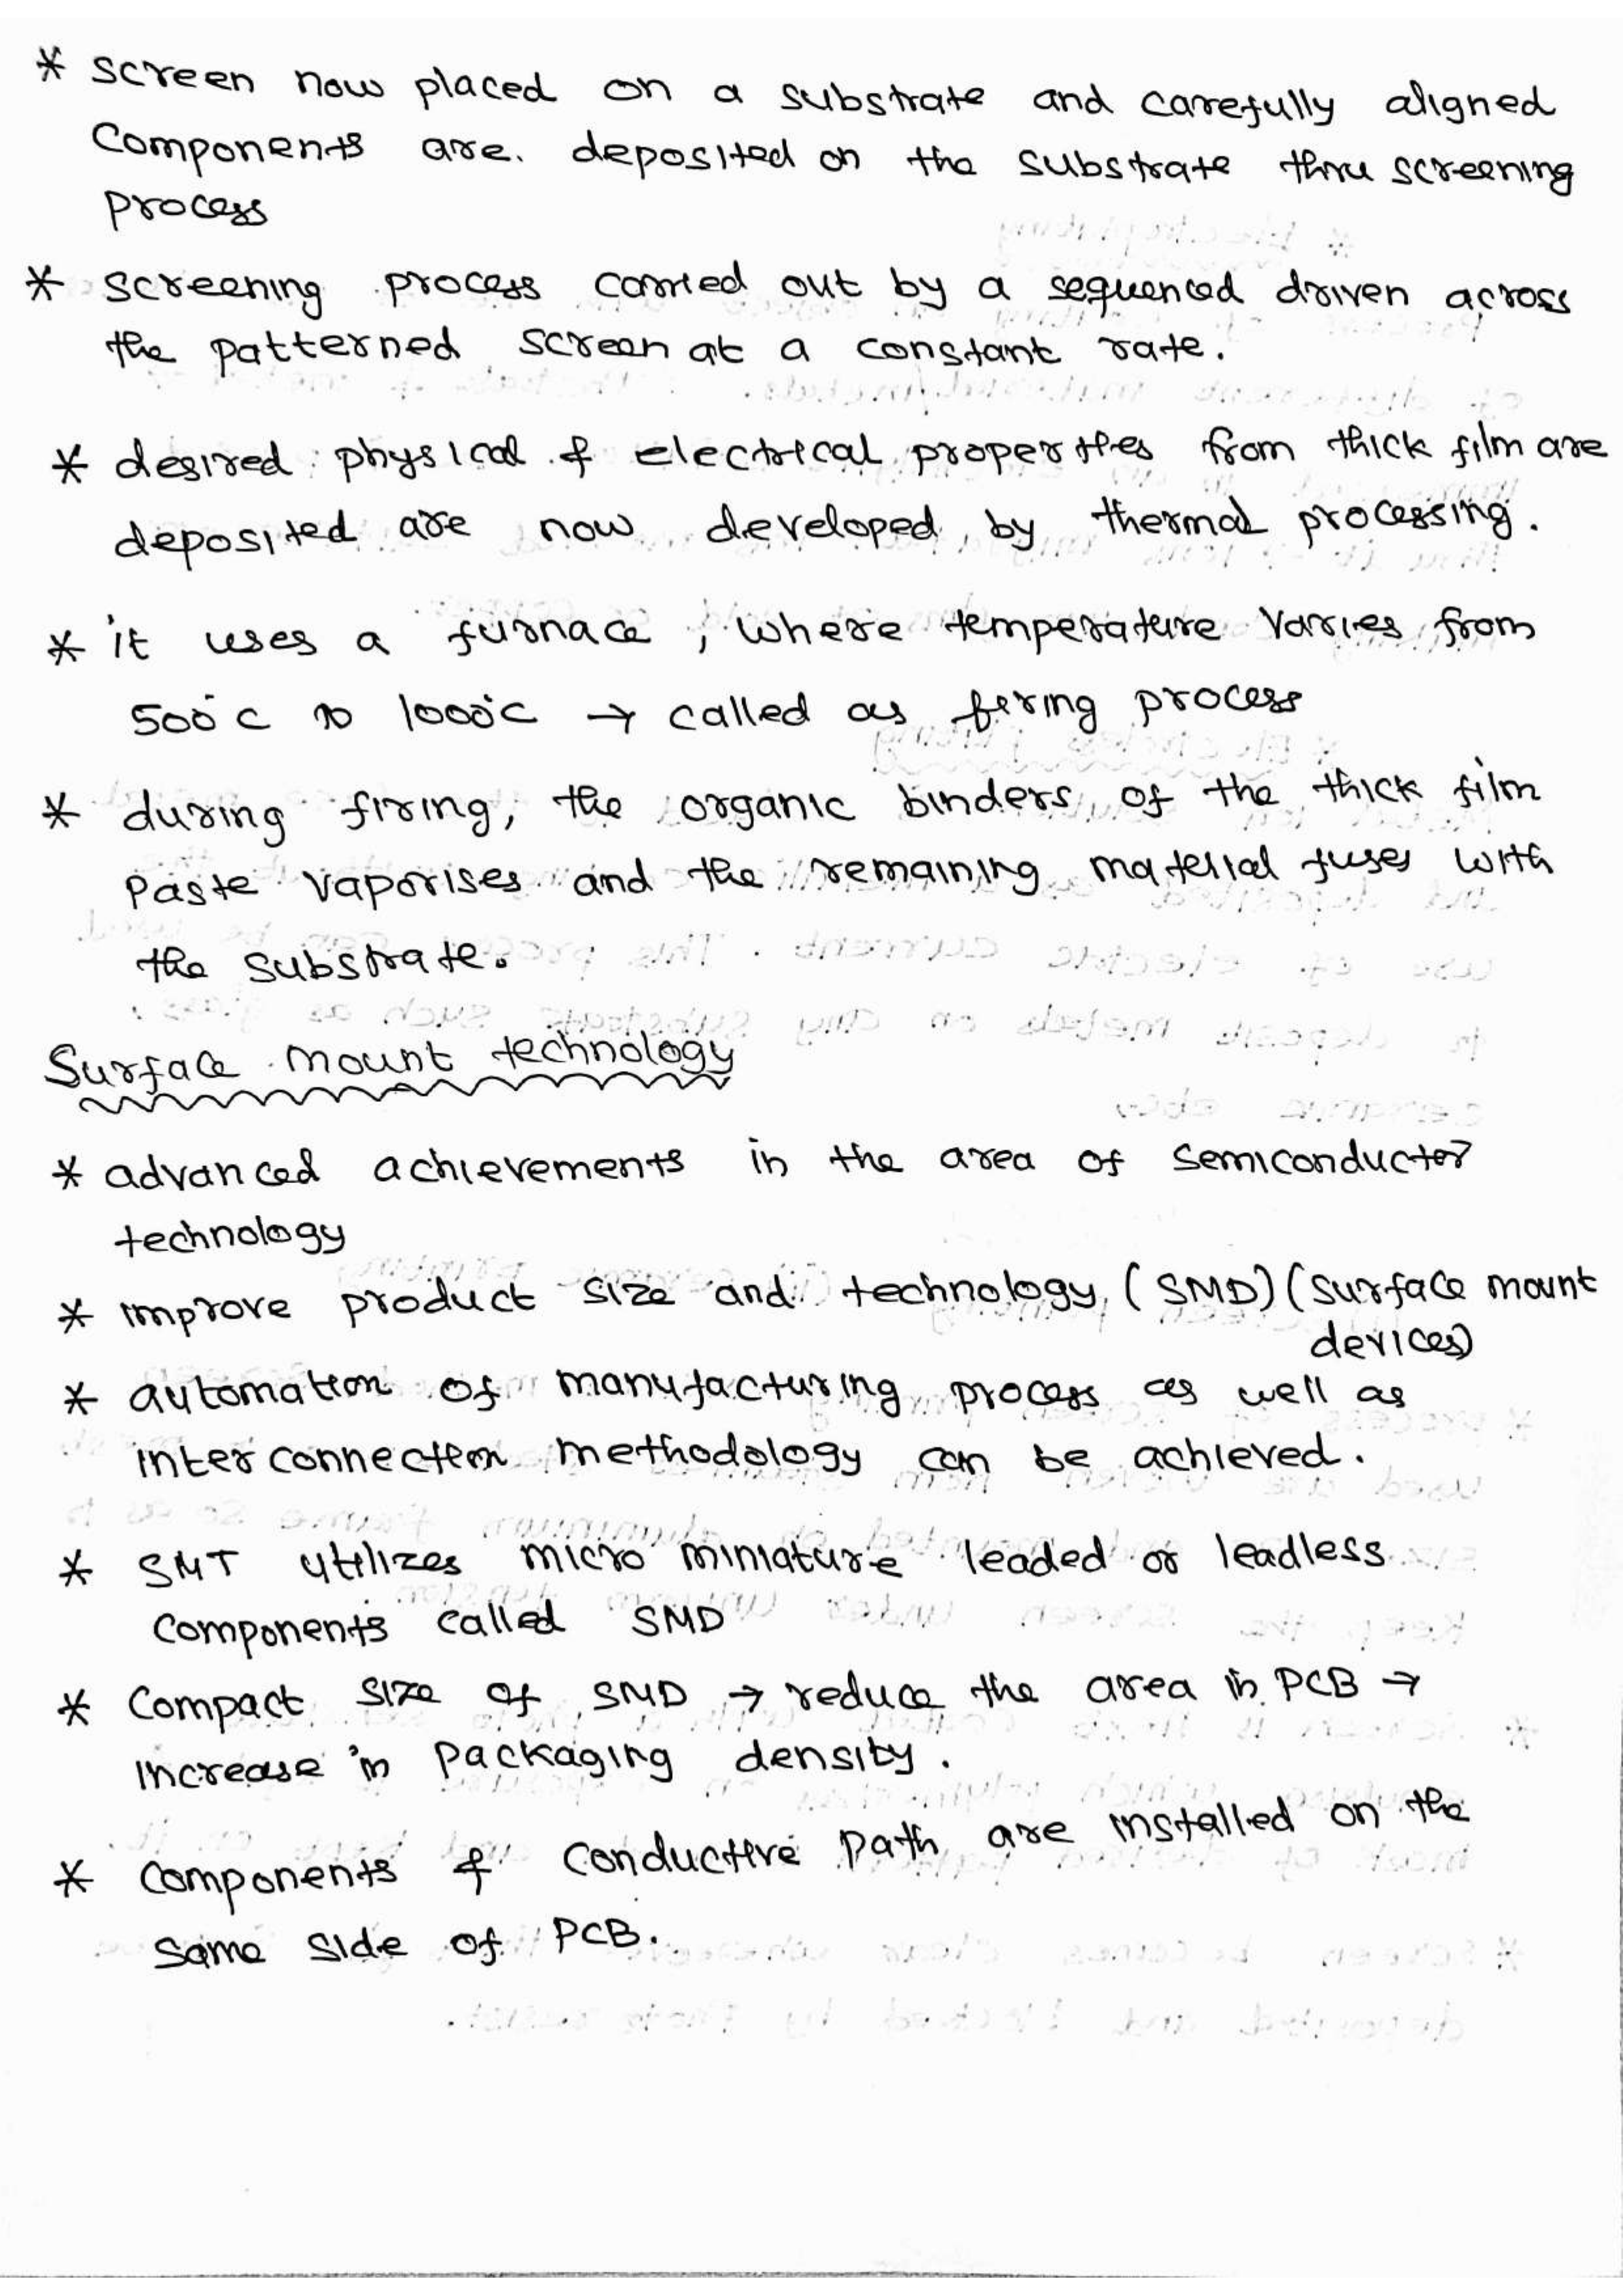 * screen now placed on a substrate and carefully aligned
components are. deposited on the substrate thru screening
process
* screening process carried out by a sequenced driven across
the patterned screen at a constant rate.
* desired physical & electrical properties from thick film are
deposited are now developed by thermal processing.
* it uses a furnace, where temperature varies from
500°C to 1000°C → called as firing process
* during firing, the organic binders of the thick film
paste vaporises and the remaining material fuses with
the substrate.
Surface mount technology
* advanced achievements in the area of semiconductor
technology
* improve product size and technology (SMD) (surface mount
devices)
* automation of manufacturing process as well as
interconnection methodology can be achieved.
* SMT utilizes micro miniature leaded or leadless
components called SMD
* Compact size of SMD → reduce the area in PCB →
increase in packaging density.
* components & conductive path are installed on the
same side of PCB.